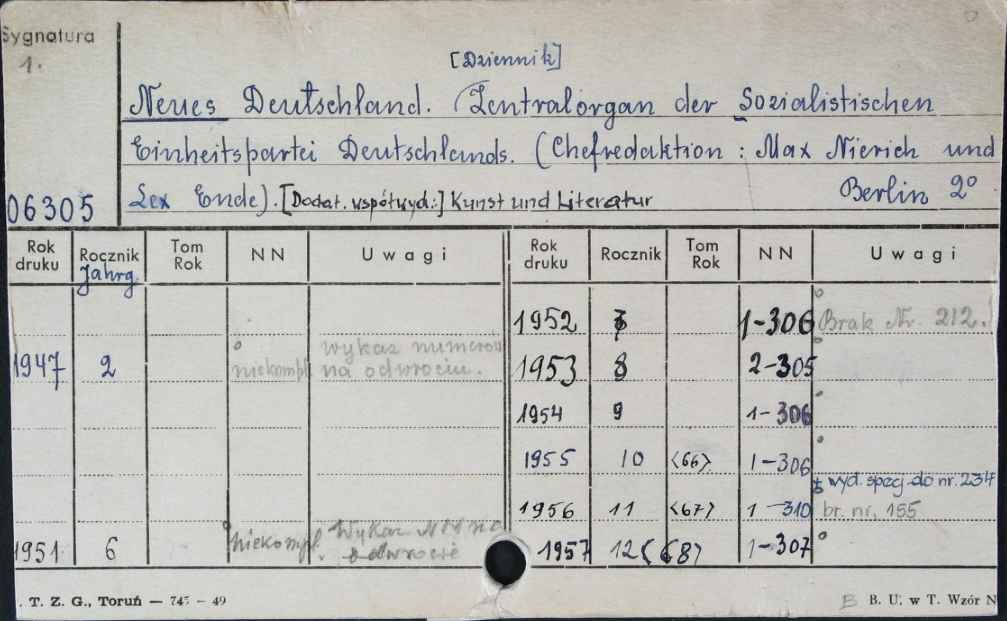 Sygnatura
1.
[Dziennik]
Neues Deutschland. (Zentralorgan der Sozialistischen
Einheitspartei Deutschlands. (Chefredaktion: Max Nierich und
Lex Ende). [Dodat. współwyd.:] Kunst und Literatur Berlin 2°
06305
Rok druku Rocznik Jahrg. Tom Rok NN Uwagi Rok druku Rocznik Tom Rok NN Uwagi
1952 1-306 Brak Nr. 212.
1947 2 niekompl. wykaz numerów na odwrociu. 1953 8 2-305
1954 9 1-306
1955 10 <66> 1-306
1956 11 <67> 1-310 + wyd. specj. do nr. 234 br. nr. 155
1951 6 niekompl. Wykaz na odwrocie 1957 12 <68> 1-307
. T. Z. G., Toruń — 745 – 49 B B. U. w T. Wzór N